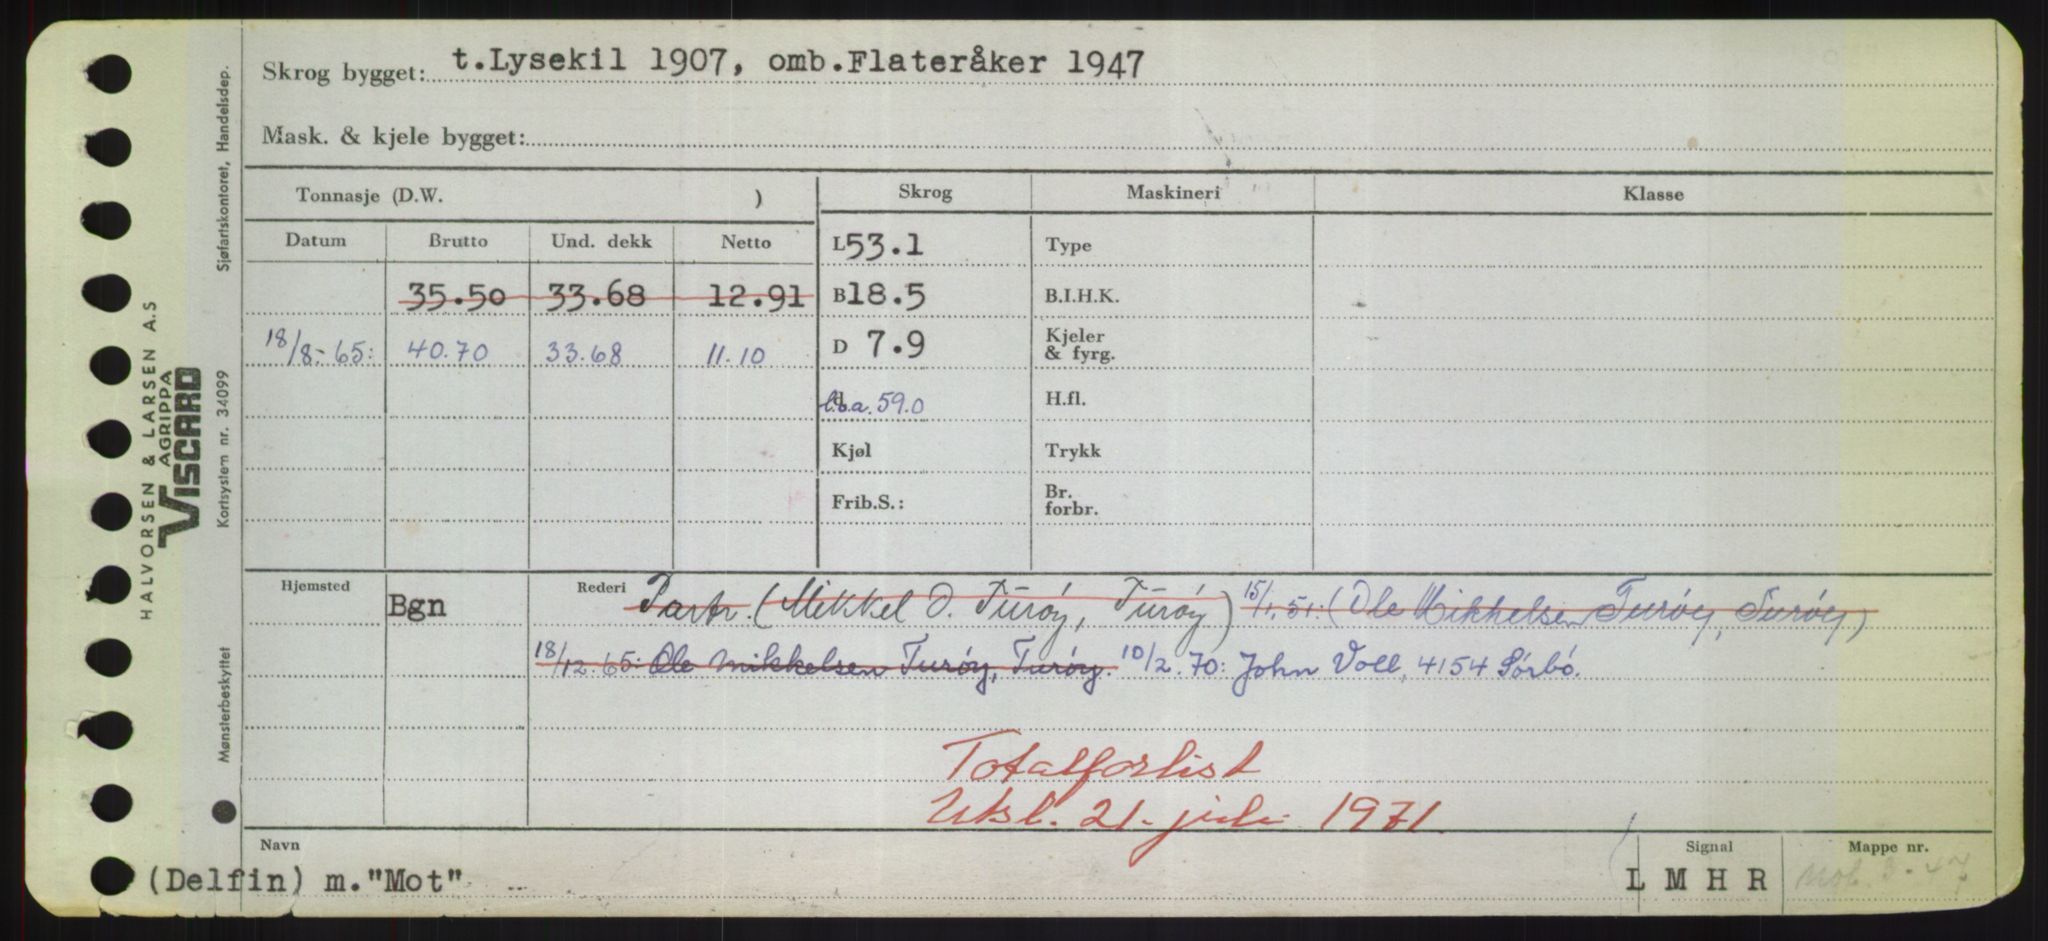 Skrog bygget: t.Lysekil 1907, omb.Flateråker 1947
Mask. & kjele bygget:
Tonnasje (D.W. )
Skrog
Maskineri
Klasse
Datum
Brutto
Und. dekk
Netto
L 53.1
Type
35.50 33.68 12.91
B 18.5
B.I.H.K.
18/8-65: 40.70 33.68 11.10
D 7.9
Kjeler
& fyrg.
l.o.a. 59.0
H.fl.
Kjøl
Trykk
Frib.S.:
Br.
forbr.
Hjemsted
Bgn
Rederi
Partr. (Mikkel O. Turøy, Turøy) 15/1.51: (Ole Mikkelsen Turøy, Turøy)
18/12.65: Ole Mikkelsen Turøy, Turøy. 10/2.70: John Voll, 4154 Sørbø.
Totalforlist
Utsl. 21. juli 1971.
Navn
(Delfin) m."Mot"
Signal
L M H R
Mappe nr.
HALVORSEN & LARSEN A.S
AGRIPPA
VISCARD
Sjøfartskontoret, Handelsdep.
Kortsystem nr. 34099
Mønsterbeskyttet